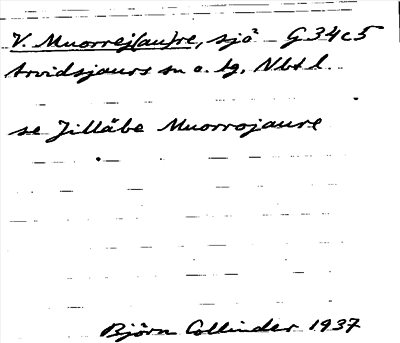 V. Muorrej(au)re, sjö G34c5
Arvidsjaurs sn o. tg, Nbtl.
se Jillåbe Muorrojaure
Björn Collinder 1937